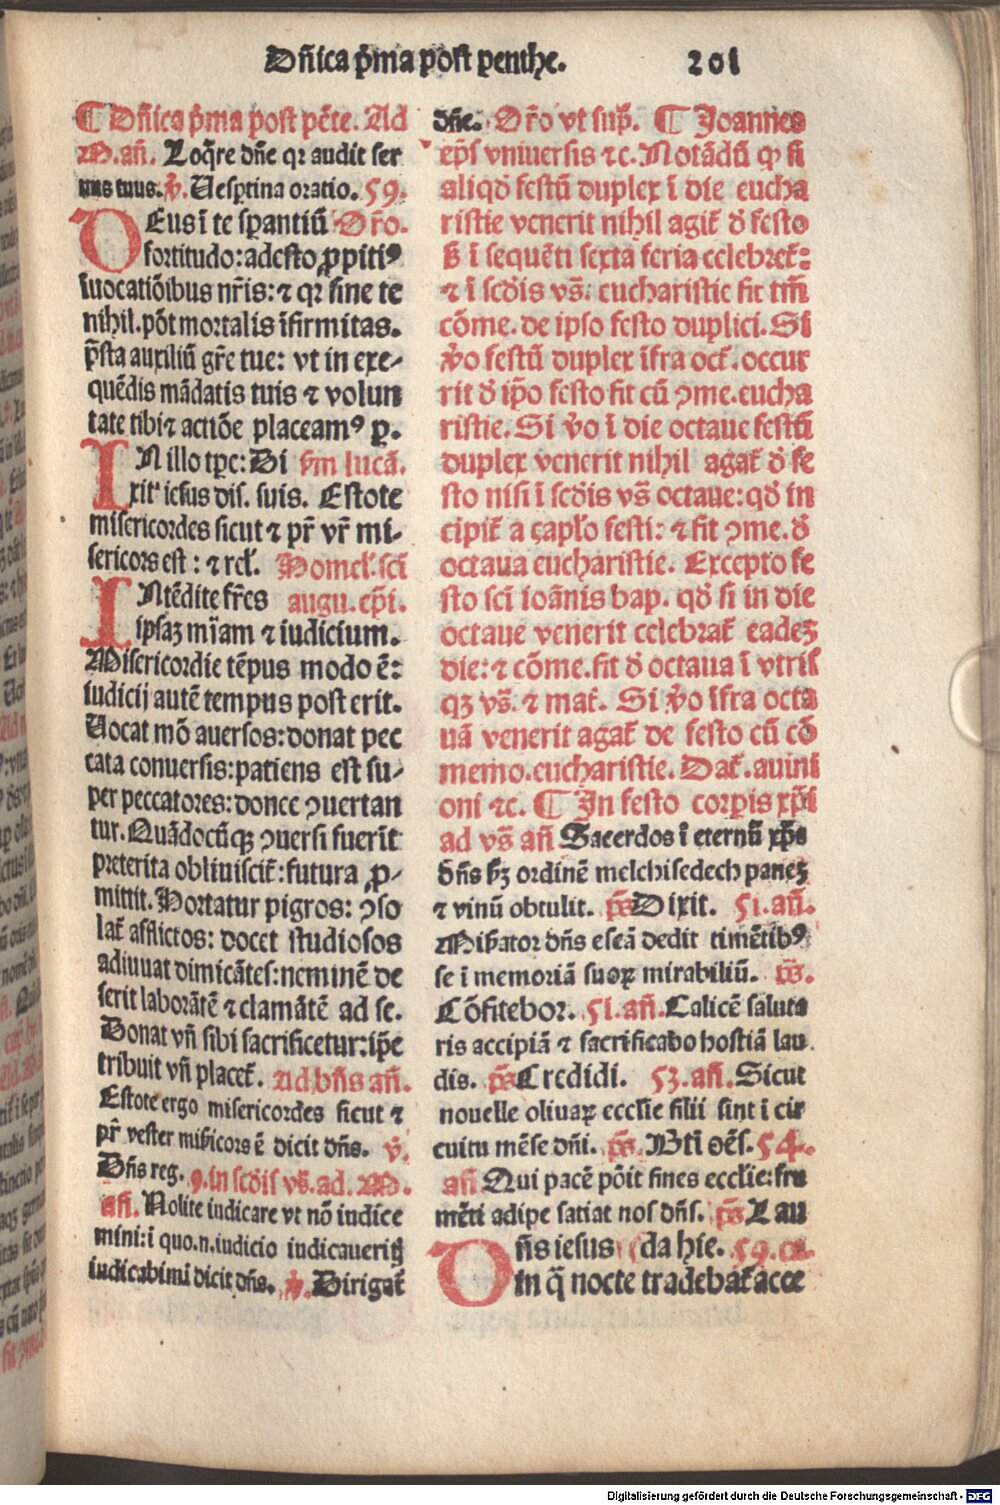 Dñica p̃ma post penthe. 201
¶ Dñica p̃ma post pẽte. Ad
M. añ. Loq̃re dñe qꝛ audit ser
uus tuus. ṽ. Uesptina oratio. 59.
DEus ĩ te sꝑantiũ Oꝛ̃o.
fortitudo: adesto ꝓpitiꝰ
ĩuocatiõibus nr̃is: ⁊ qꝛ sine te
nihil. põt mortalis ĩfirmitas.
p̃sta auxiliũ gr̃e tue: vt in exe⸗
quẽdis mãdatis tuis ⁊ volun
tate tibi⁊ actiõe placeamꝰ ꝑ.
IN illo tꝑe: Di ẜm lucã.
xit iesus dis. suis. Estote
misericordes sicut ⁊ pr̃ vr̃ mi⸗
sericors est: ⁊ rel̃. Homel̃. scĩ
INtẽdite fr̃es augu. ep̃i.
ipsaȝ mĩam ⁊ iudicium.
Misericordie tẽpus modo ẽ:
iudicij autẽ tempus post erit.
Uocat mõ auersos: donat pec
cata conuersis: patiens est su⸗
per peccatores: donec ꝯuertan
tur. Quãdocũqȝ ꝯuersi fuerĩt
preterita obliuiscit̃: futura ꝓ⸗
mittit. Hortatur pigros: ꝯso
lat̃ afflictos: docet studiosos
adiuuat dimicãtes: neminẽ de
serit laborãtẽ ⁊ clamãtẽ ad se.
Donat vñ sibi sacrificetur: ip̃e
tribuit vñ placet̃. Ad bñs añ.
Estote ergo misericordes sicut ⁊
pr̃ vester mĩbicors ẽ dicit dñs. ṽ.
Dñs reg. ꝯ. in scðis vs̃. ad. M.
añ. Nolite iudicare vt nõ iudice
mini: ĩ quo. n. iudicio iudicaueritꝭ
iudicabimĩ dicit dñs. ṽ. Dirigat̃
dñe. Oꝛ̃o vt sup̃. ¶ Joannes
ep̃s vniuersis ⁊c. Notãdũ ꝙ si
aliqð festũ duplex ĩ die eucha
ristie venerit nihil agit̃ ð festo
ẜ ĩ sequẽti sexta feria celebret̃:
⁊ ĩ scðis vs̃. eucharistie fit tm̃
cõme. de ipso festo duplici. Si
ṽo festũ duplex ĩfra oct̃. occur
rit ð ip̃o festo fit cũ ꝯme. eucha
ristie. Si ṽo ĩ die octaue festũ
duplex venerit nihil agat̃ ð fe
sto nisi ĩ scðis vs̃ octaue: qð in
cipit̃ a capl̃o festi: ⁊ fit ꝯme. ð
octaua eucharistie. Excepto fe
sto scĩ ioãnis bap. qð si in die
octaue venerit celebrat̃ eadeȝ
die: ⁊ cõme. fit ð octaua ĩ vtris
qȝ vs̃. ⁊ mat̃. Si ṽo ĩfra octa
uã venerit agat̃ de festo cũ cõ
memo. eucharistie. Dat̃. auini
oni ⁊c. ¶ In festo corꝑis xp̃i
ad vs̃ añ Sacerdos ĩ eternũ xp̃s
dñs ẜȝ ordinẽ melchisedech paneȝ
⁊ vinũ obtulit. ps̃ Dixit. 51. añ.
Misẽator dñs escã dedit timẽtibꝰ
se ĩ memoriã suoꝝ mirabiliũ. ps̃.
Cõfitebor. 51. añ. Calicẽ saluta
ris accipiã ⁊ sacrificabo hostiã lau
dis. ps̃ Credidi. 53. añ. Sicut
nouelle oliuaꝝ ecclie filii sint ĩ cir
cuitu mẽse dñi. ps̃. Btĩ oẽs. 54.
añ. Qui pacẽ põit fines ecclie: fru
mẽti adipe satiat nos dñs. ps̃ Lau
Dñs iesus da hie. 59. ca.
in q̃ nocte tradebat̃ acce
Digitalisierung gefördert durch die Deutsche Forschungsgemeinschaft - DFG